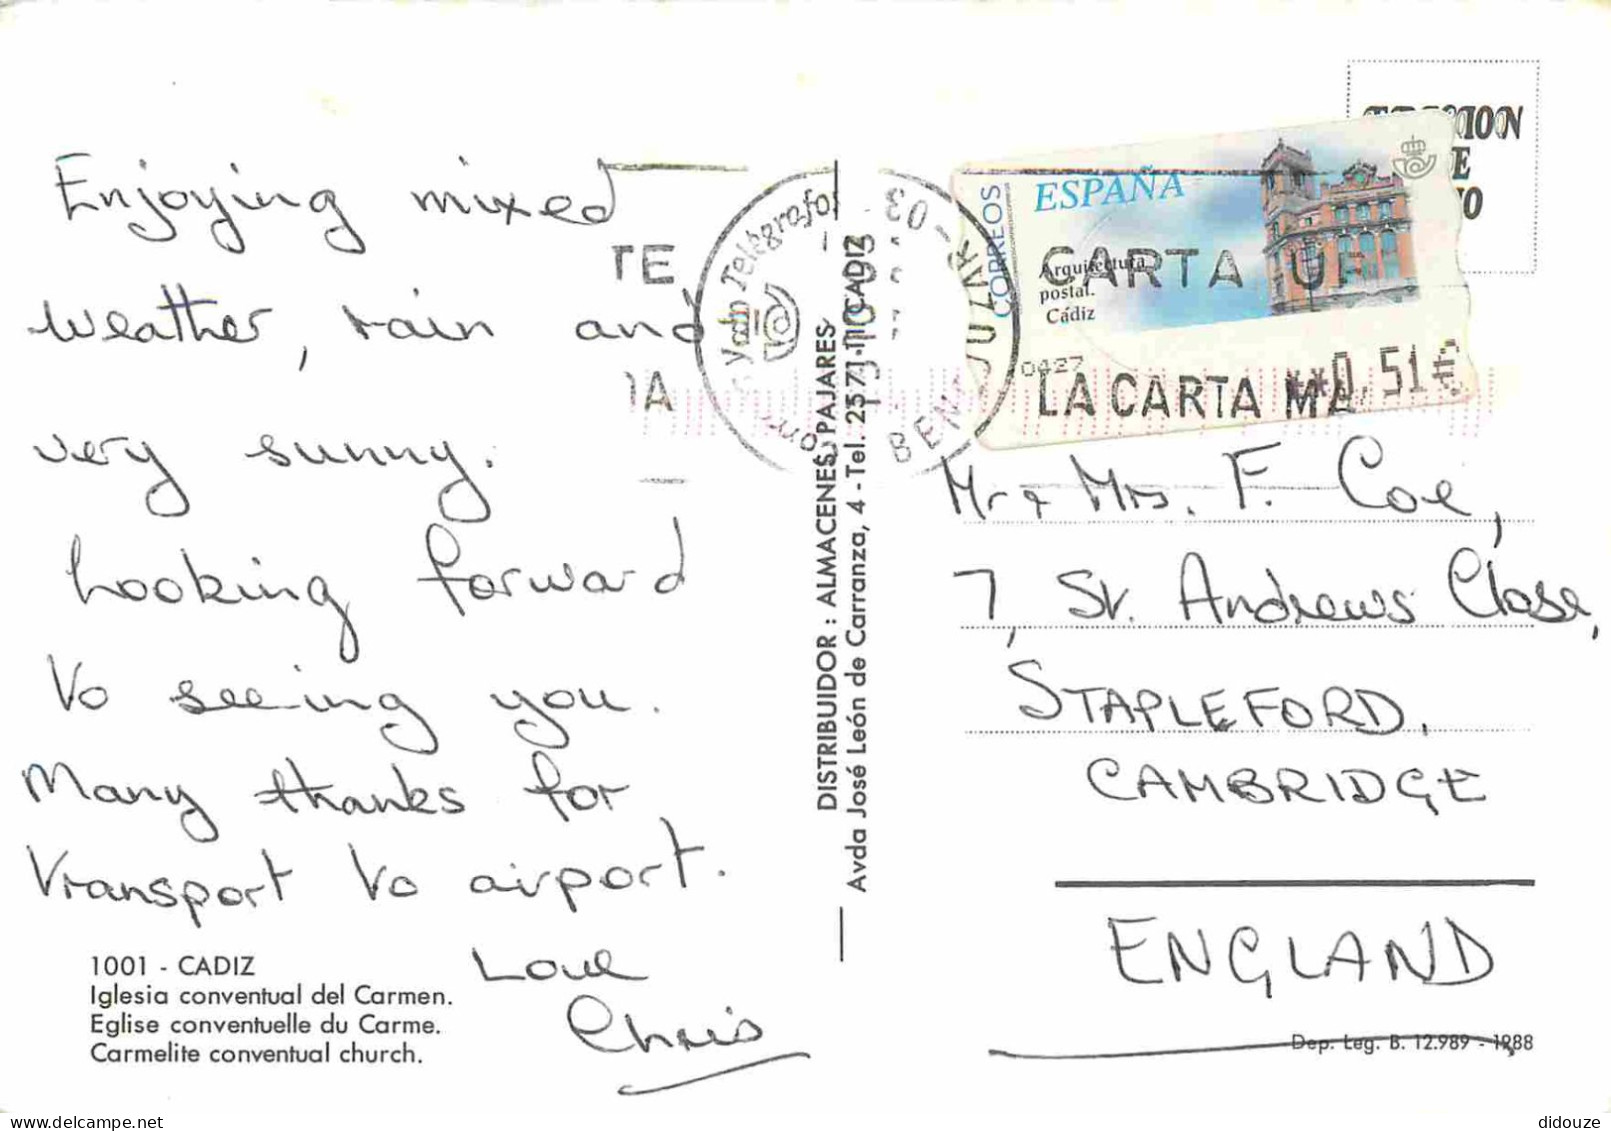 Enjoying mixed
weather, rain and
very sunny.
Looking forward
to seeing you.
Many thanks for
transport to airport.
Love
Chris
1001 - CADIZ
Iglesia conventual del Carmen.
Eglise conventuelle du Carme.
Carmelite conventual church.
DISTRIBUIDOR : ALMACENES PAJARES
Avda José León de Carranza, 4 - Tel. 25 71 11 CADIZ
TE
Telégrafo
03
BEN
CORREOS
ESPAÑA
Arquitectura
postal.
Cádiz
CARTA
0427
**0,51€
LA CARTA
Mr & Mrs. F. Coe,
7, St. Andrews Close,
STAPLEFORD,
CAMBRIDGE
ENGLAND
Dep. Leg. B. 12.989 - 1988
didouze